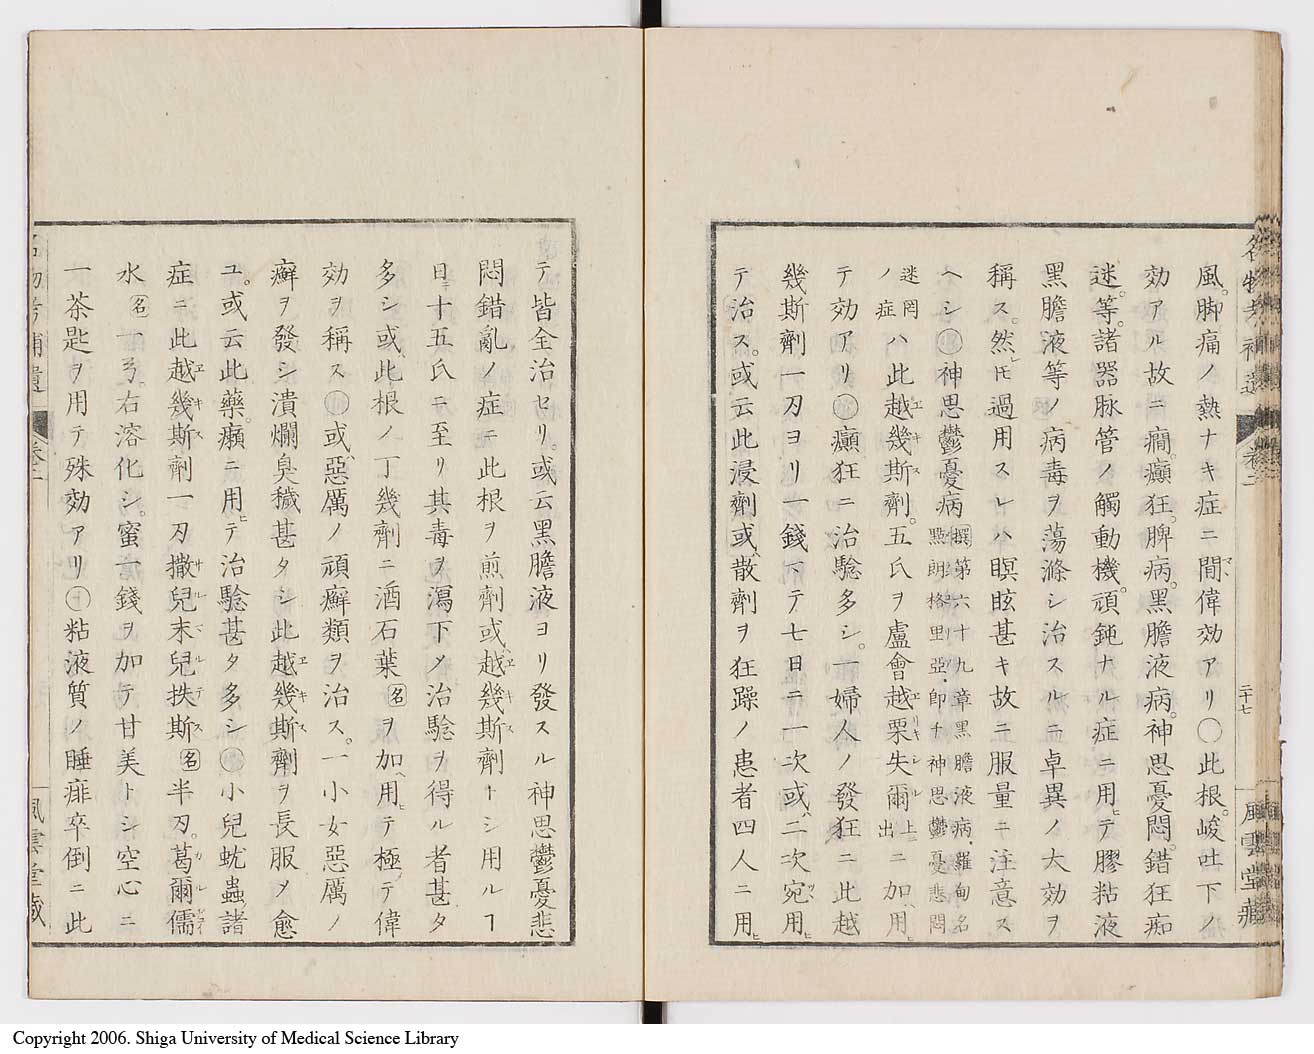 風。脚痛ノ熱ナキ症ニ間偉効アリ○此根。峻吐下ノ
効アル故ニ癇。癲狂。脾病。黒膽液病。神思憂悶。錯狂痴
迷。等。諸器脉管ノ觸動機。頑鈍ナル症ニ用ヒテ膠粘液
黒膽液等ノ病毒ヲ蕩滌シ治スルニ卓異ノ大効ヲ
稱ス。然ヒ𪜈過用スレハ瞑眩甚キ故ニ服量ニ注意ス
ヘシ㊀神思鬱憂病
撰第六十九章黒膽液病。羅甸名
黙朗格里亞。即チ神思鬱憂悲悶
迷罔
ノ症
ハ此越幾斯劑。五氏ヲ盧會越栗失爾上ニ出ニ加用ヒ
テ効アリ㊁癲狂ニ治験多シ。一婦人ノ發狂ニ此越
幾斯劑一刄ヨリ一錢マテ七日ニ一次或ハ二次宛用ヒ
テ治ス。或云此浸劑或ハ散劑ヲ狂躁ノ患者四人ニ用ヒ
名物考補遺
卷二
二十七
風雲堂藏
テ皆全治セリ。或云黒膽液ヨリ發スル神思鬱憂悲
悶錯亂ノ症ニ此根ヲ煎劑或ハ越幾斯劑トシ用ルヿ
日ニ十五氏ニ至リ其毒ヲ瀉下ノ治験ヲ得ル者甚タ
多シ或ハ此根ノ丁幾劑ニ酒石葉名ヲ加ヘ用ヒテ極テ偉
効ヲ稱ス㊂或ハ惡厲ノ頑癬類ヲ治ス。一小女惡厲ノ
癬ヲ發シ潰爛臭穢甚タシ此越幾斯劑ヲ長服メ愈
ユ。或云此藥。癩ニ用ヒテ治験甚タ多シ㊃小兒蚘蟲諸
症ニ此越幾斯劑一刄撒兒末兒扶斯名半刄。葛爾儒
水名一弓。右溶化シ。蜜一錢ヲ加テ甘美トシ空心ニ
一茶匙ヲ用テ殊効アリ㊄粘液質ノ睡痱卒倒ニ此
名物考補遺
卷二
風雲堂藏
Copyright 2006. Shiga University of Medical Science Library